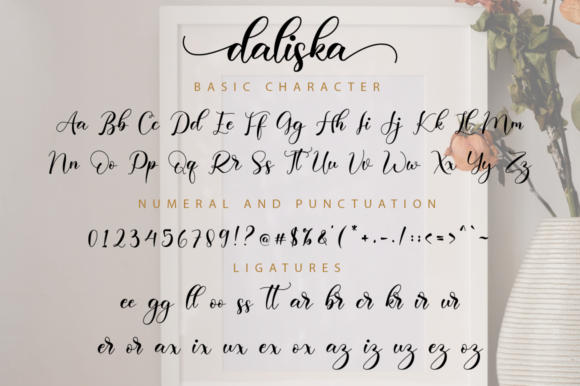 daliska
BASIC CHARACTER
Aa Bb Cc Dd Ee Ff Gg Hh Ii Jj Kk Ll Mm
Nn Oo Pp Qq Rr Ss Tt Uu Vv Ww Xx Yy Zz
NUMERAL AND PUNCTUATION
0123456789!?@#$%&'(*+,-./:;<=>^`~
LIGATURES
ee gg ll oo ss tt ar br cr kr ir ur
er or ax ix ux ex ox az iz uz ez oz